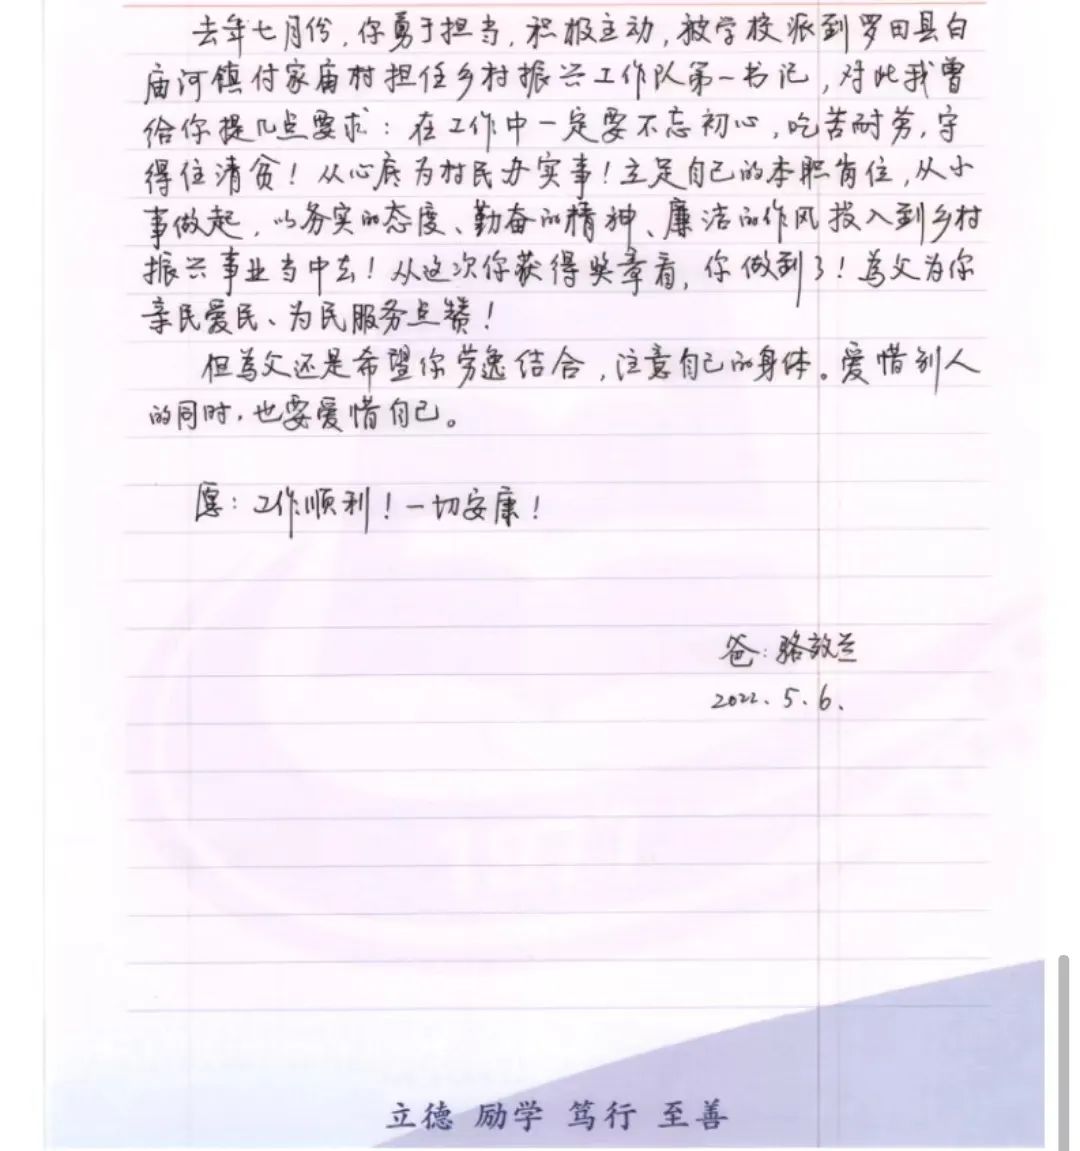 去年七月份，你勇于担当，积极主动，被学校派到罗田县白
庙河镇付家庙村担任乡村振兴工作队第一书记，对此我曾
给你提几点要求：在工作中一定要不忘初心，吃苦耐劳，守
得住清贫！从心底为村民办实事！立足自己的本职岗位，从小
事做起，以务实的态度、勤奋的精神、廉洁的作风投入到乡村
振兴事业当中去！从这次你获得奖章看，你做到了！為父为你
亲民爱民、为民服务点赞！
但為父还是希望你劳逸结合，注意自己的身体。爱惜别人
的同时，也要爱惜自己。
愿：工作顺利！一切安康！
爸：骆效兰
2022.5.6.
立德 励学 笃行 至善